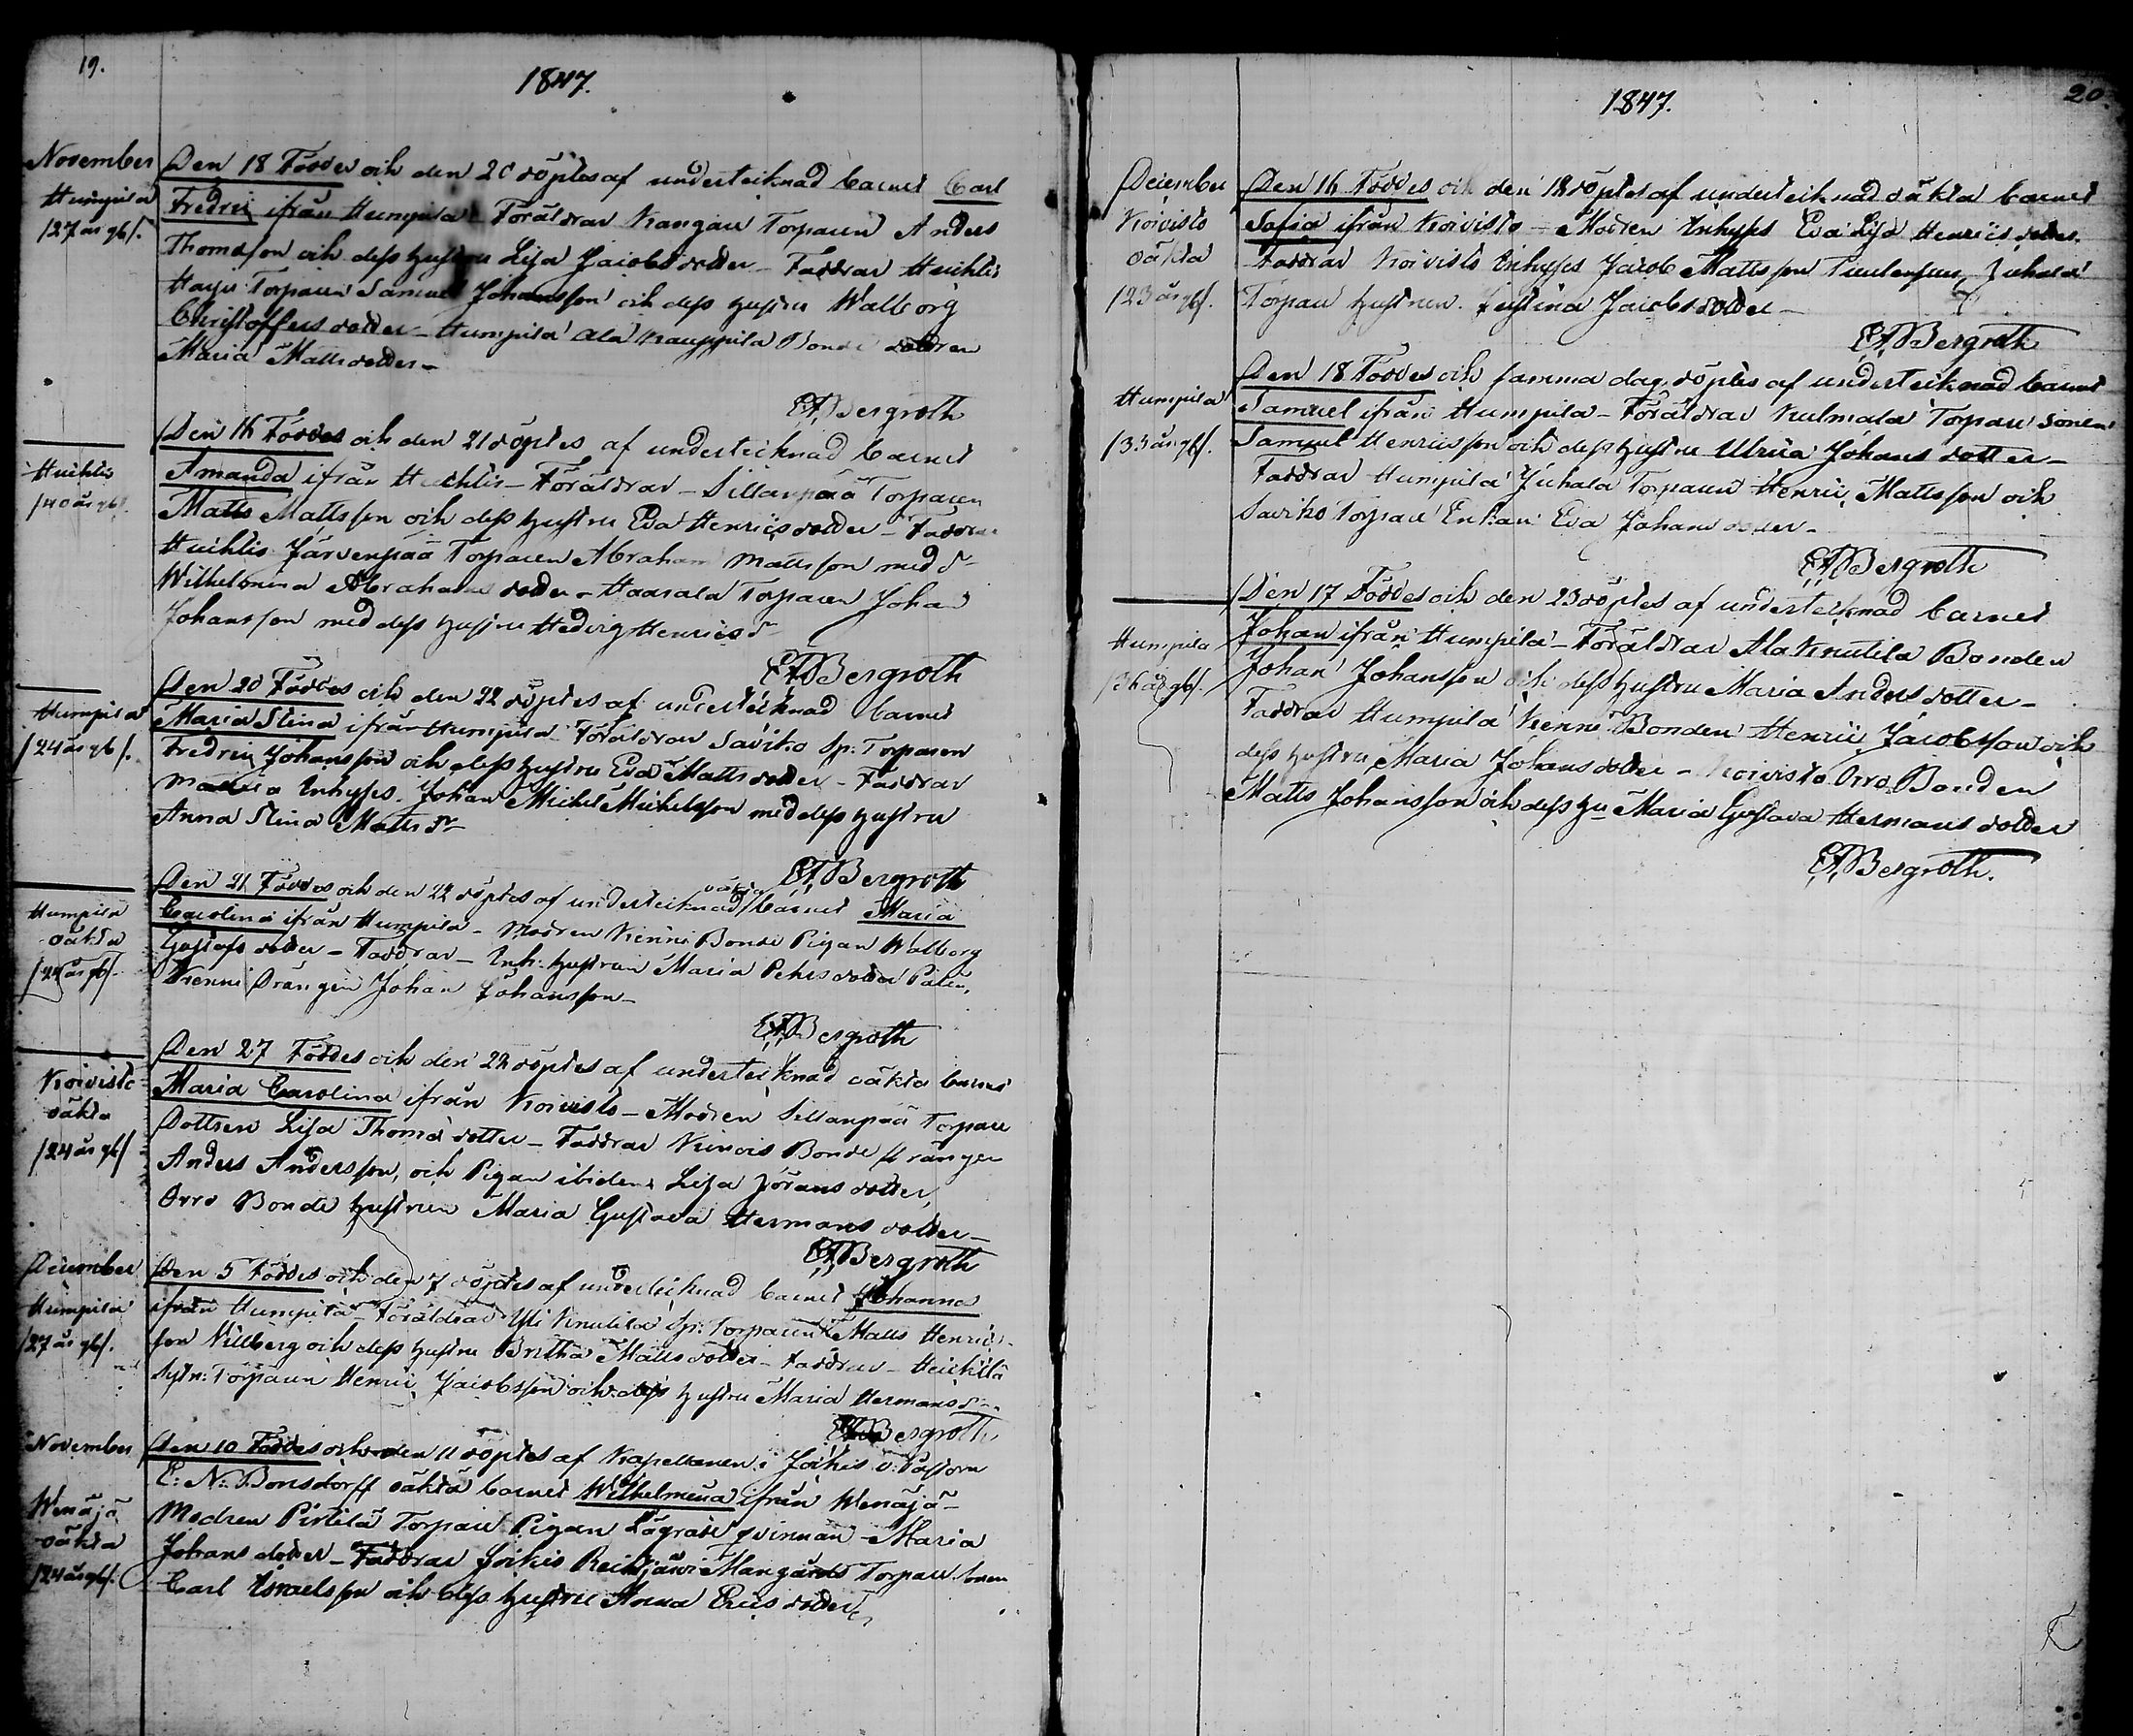 19.
1847.
November
Humpila
/27 år gl/.
Den 18 Föddes och den 20 döptes af undertecknad barnet Carl
Fredric ifrån Humpila - Föräldrar Kangare Torparen Anders
Thomasson och dess hustru Lisa Jacobsdotter - Faddrar Huhtis
Torparen Samuel Johansson och dess hustru Walborg
Christoffersdotter - Humpila Ala Kauppila Bonde dottren
Maria Mattsdotter -
EFBergroth
Huhtis
/40 år gl/.
Den 16 Föddes och den 21 döptes af undertecknad barnet
Amanda ifrån Huhtis - Föräldrar - Sillanpää Torparen
Matts Mattsson och dess hustru Eva Henricsdotter - Faddrar
Huhtis Järvenpää Torparen Abraham Mattsson med d:
Wilhelmina Abrahamsdotter - Haarala Torparen Johan
Johansson med dess hustru Hedvig Henricsd:
EFBergroth
Humpila
/24 år gl/.
Den 20 Föddes och den 22 döptes af undertecknad barnet
Maria Stina ifrån Humpila Föräldrar Saviko Sp: Torparen
Fredric Johansson och dess hustru Eva Mattsdotter - Faddrar
Inhyses Johan Michel Michelsson med dess hustru
Anna Stina Matts d:
EFBergroth
Humpila
oäkta
/24 år gl/.
Den 21 Föddes och den 22 döptes af undertecknad oäkta barnet Maria
Carolina ifrån Humpila - Modren Kenni Bonde Pigan Walborg
Gustafsdotter - Faddrar - Inh: hustrun Maria Pehrsdotter
Kenni Drängen Johan Johansson -
EFBergroth
Koivisto
oäkta
/24 år gl/
Den 27 Föddes och den 28 döptes af undertecknad oäkta barnet
Maria Carolina ifrån Koivisto - Modren Sillanpää Torpare
Dottren Lisa Thomædotter - Faddrar Bonde drängen
Anders Andersson, och Pigan ibidem Lisa Göransdotter,
Orro Bonde hustrun Maria Gustava Hermansdotter -
EFBergroth
December
Humpila
/27 år gl/.
Den 5 Föddes och den 7 döptes af undertecknad barnet Johanna
ifrån Humpila - Föräldrar Yli Knutila Sp: Torparen Matts Henrics-
son Villberg och dess hustru Britha Mattsdotter - Faddrar - Heikkilä
Torparen Henric Jacobsson och dess hustru Maria Hermansd:
EFBergroth
November
Wenäjä
oäkta
/24 år gl/.
Den 10 Föddes och den 11 döptes af Kapellanen i Jockis v: Pastorn
E: N: Bonsdorff oäkta barnet Wilhelmina ifrån Wenäjä -
Modren Pirtilä Torpare Pigan Lägrade qvinnan - Maria
Johansdotter - Faddrar Jockis Torpare sonen
Carl Israelsson och dess hustru Anna Ericsdotter
20.
1847.
December
Koivisto
oäkta
/23 år gl/.
Den 16 Föddes och den 18 döptes af undertecknad oäkta barnet
Sofia ifrån Koivisto - Modren Inhyses Eva Lisa Henricsdotter.
Faddrar Koivisto Inhyses Jacob Mattsson Juhala
Torpare hustrun Justina Jacobsdotter -
EFBergroth
Humpila
/33 år gl/.
Den 18 Föddes och samma dag döptes af undertecknad barnet
Samuel ifrån Humpila - Föräldrar Kulmala Torpare sonen
Samuel Henricsson och dess hustru Ulrica Johansdotter -
Faddrar Humpila Juhala Torparen Henric Mattsson och
Saviko Torpare Enkan Eva Johansdotter -
EFBergroth
Humpila
/36 år gl/.
Den 17 Föddes och den 23 döptes af undertecknad barnet
Johan ifrån Humpila - Föräldrar Ala Knutila Bonden
Johan Johansson och dess hustru Maria Andersdotter -
Faddrar Humpila Kenni Bonden Henric Jacobsson och
dess hustru Maria Johansdotter - Koivisto Orro Bonden
Matts Johansson och dess hu Maria Gustava Hermansdotter
EFBergroth.